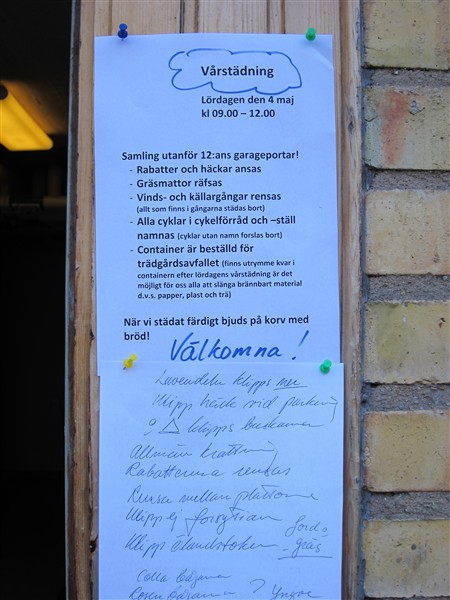 Vårstädning
Lördagen den 4 maj
kl 09.00 – 12.00
Samling utanför 12:ans garageportar!
- Rabatter och häckar ansas
- Gräsmattor räfsas
- Vinds- och källargångar rensas
(allt som finns i gångarna städas bort)
- Alla cyklar i cykelförråd och –ställ
namnas (cyklar utan namn forslas bort)
- Container är beställd för
trädgårdsavfallet (finns utrymme kvar i
containern efter lördagens vårstädning är det
möjligt för oss alla att slänga brännbart material
d.v.s. papper, plast och trä)
När vi städat färdigt bjuds på korv med
bröd!
Välkomna!
Lavendeln klipps ner
Klipp häck vid parkering
klipps buskarna
Allmän krattning
Rabatterna rensas
Rensa mellan plattorna
Klipp ej forsytian
Klipp Ölandstoken
gräs
Yngve